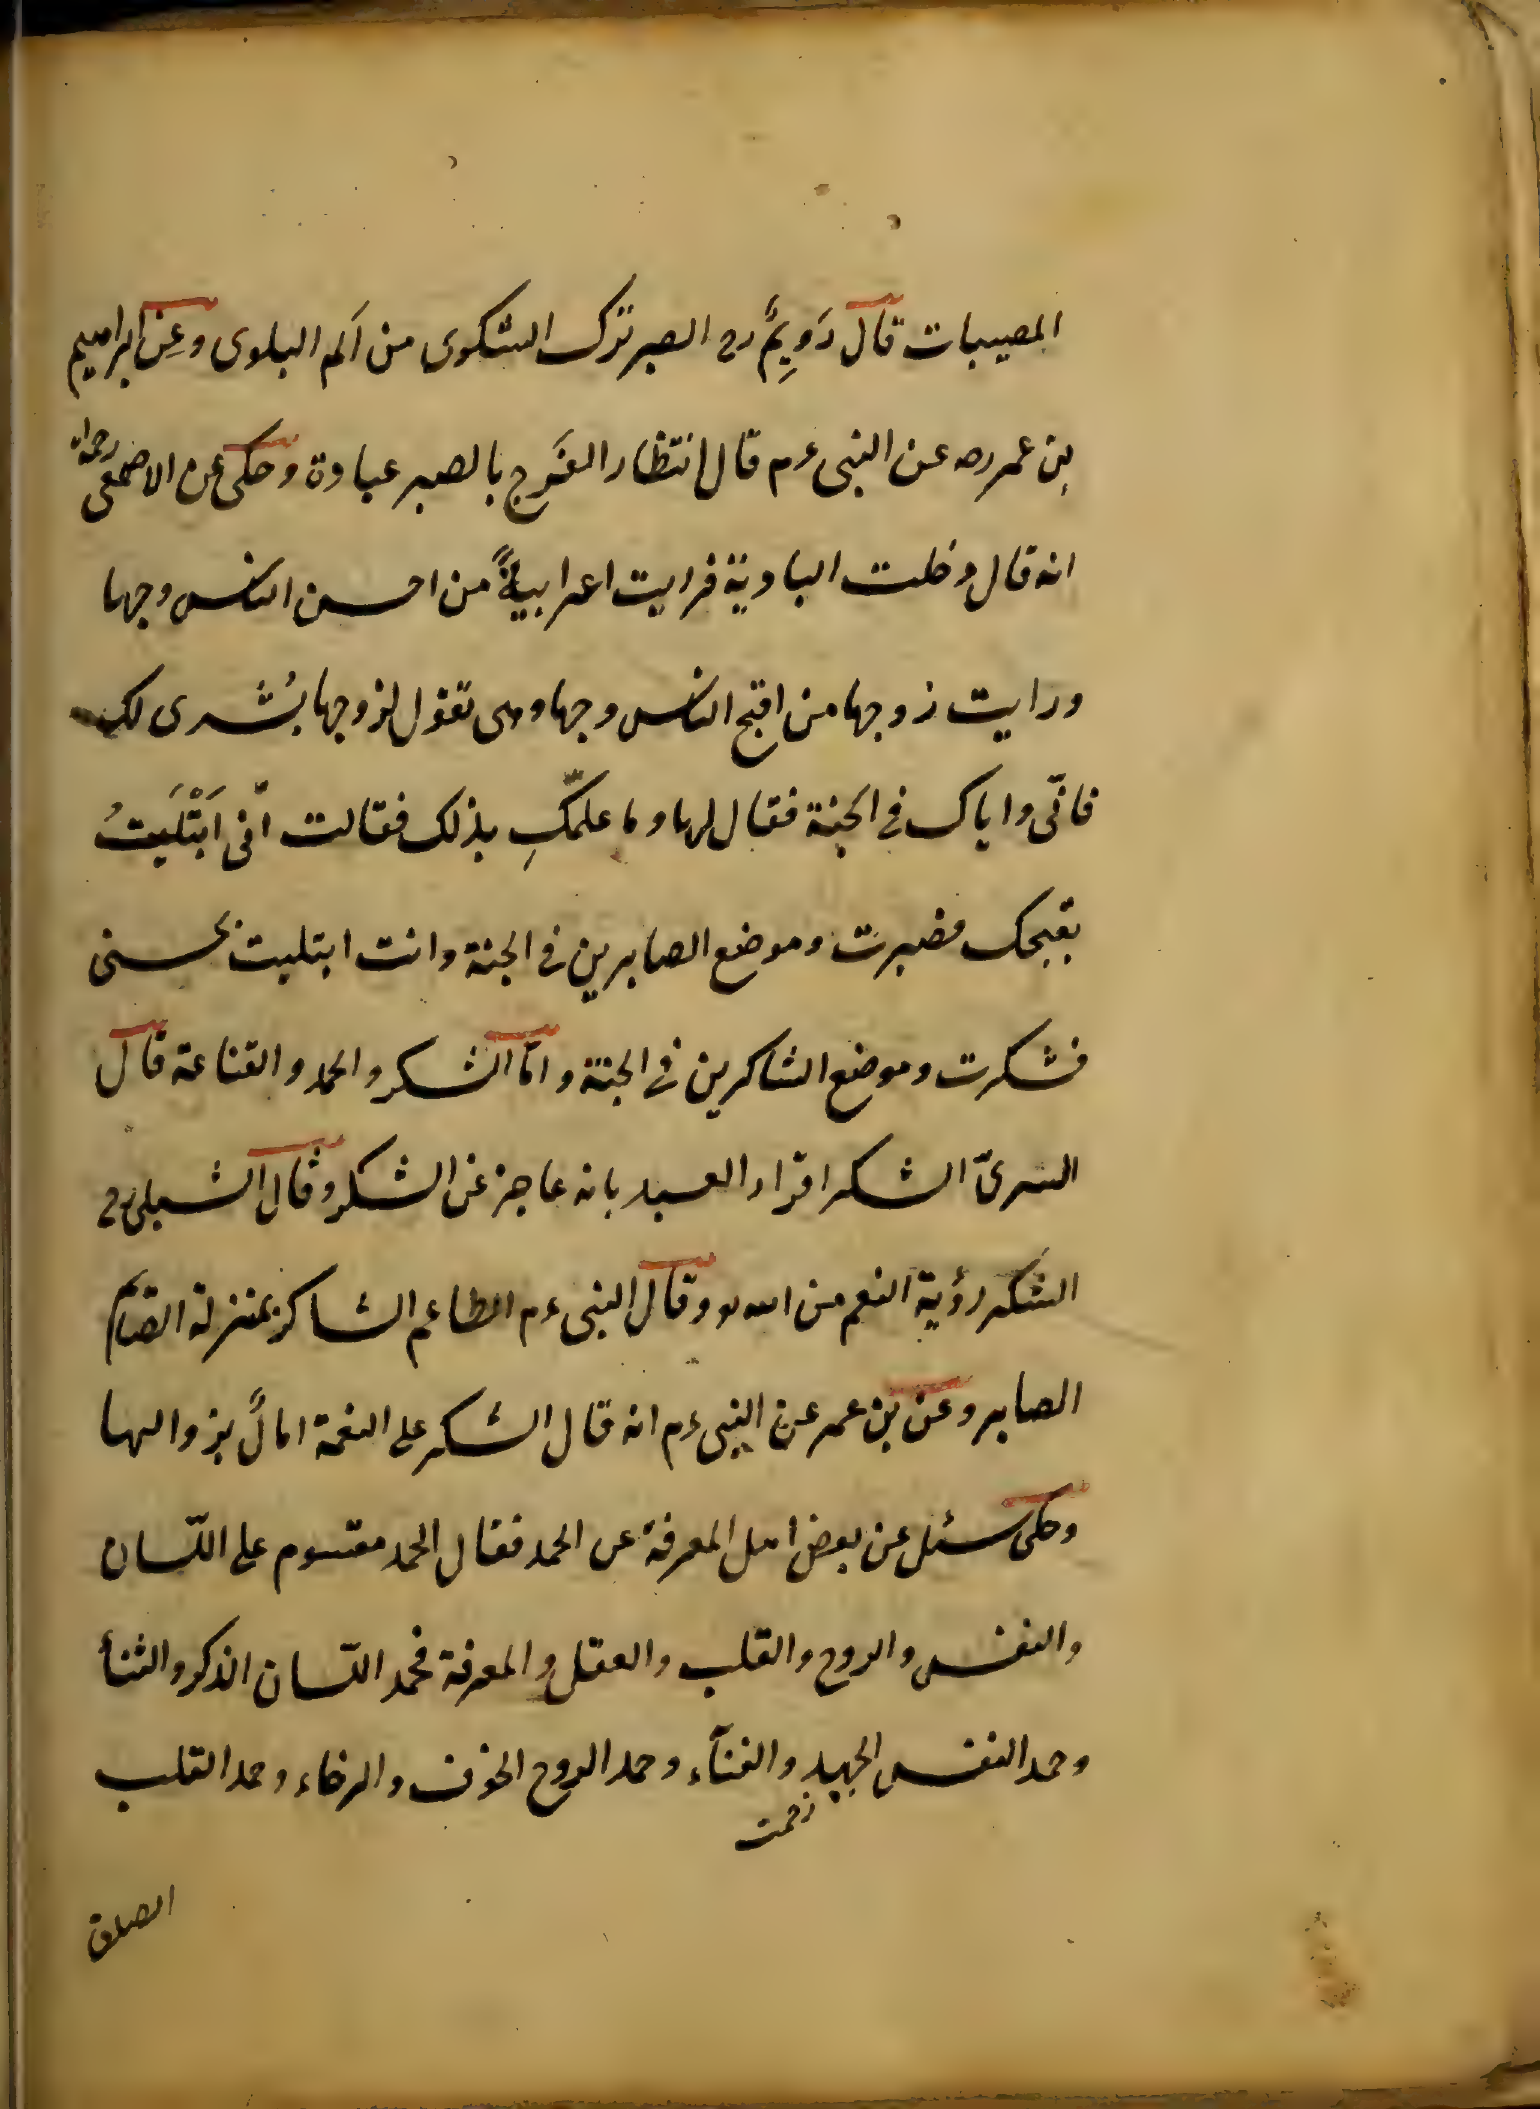 المصيبات قال رَويِمٌ رح الصبر ترك الشكوى من اَلم البلوى وعِن ابراهيم
بن عمر رضه عن النبى ءم قال انتظار الفَرج بالصبر عبادة وحكى عن الاصمعى رحمه
انه قال دخلت البادية فرايت اعرابيةً من احسن الناس وجها
ورايت زوجها من اقبح الناس وجها وهى تقول لزوجها بُشرى لك
فانّى واياك فى الجنة فقال لها وما علمّكِ بذلك فقالت انّى اَبْتَلَيتُ
بقبحك فصبرت وموضع الصابرين فى الجنة وانت ابتليت بحسنى
فشكرت وموضع الشاكرين فى الجنة وامّا الشكر والحمد والقناعة قال
السرىّ الشكر اقرار العبد بانه عاجز عن الشكر وقال الشبلى رح
الشكر رؤية النعم من الله وقال النبى ءم الطاعم الشاكر بمنزلة الصّايم
الصابر وعن بن عمر عن النبى ءم انه قال الشكر على النعمة امانٌ بزوالها
وحكى سئل عن بعض اهل المعرفة عن الحمد فقال الحمد مقسوم على اللّسان
والنفس والروح والقلب والعقل والمعرفة فحمد اللّسان الذكر والثنأ
وحمد النفس الجهد والفنآء وحمد الروح الخوف والرخاء وحمد القلب
زحمت
الصدق